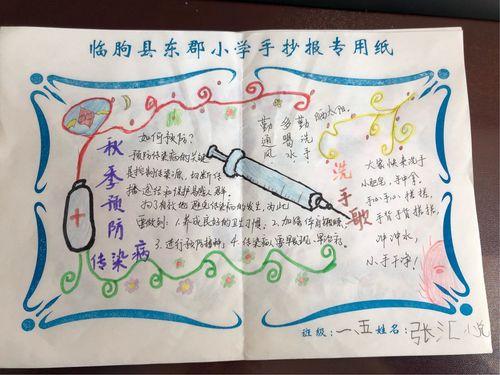 临朐县东郡小学手抄报专用纸
秋季预防
传染病
如何预防?
预防传染病的关键
是控制传染源,切断传
播途径和保护易感人群。
为了有效地避免传染病的发生,为此
要做到:1.养成良好的卫生习惯。2.加强体育锻炼
3.进行预防接种。4.传染病人要早发现,早治疗。
勤通风
多喝水
勤洗手
晒太阳
洗手歌
大家快来洗手
小肥皂,手中拿,
手心手心,搓搓,
手背手背搓搓,
冲冲水,
小手干净!
班级:一、五姓名:张汇